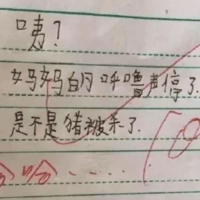 咦?
妈妈的呼噜声停了.
是不是猪被杀了.
哈哈......